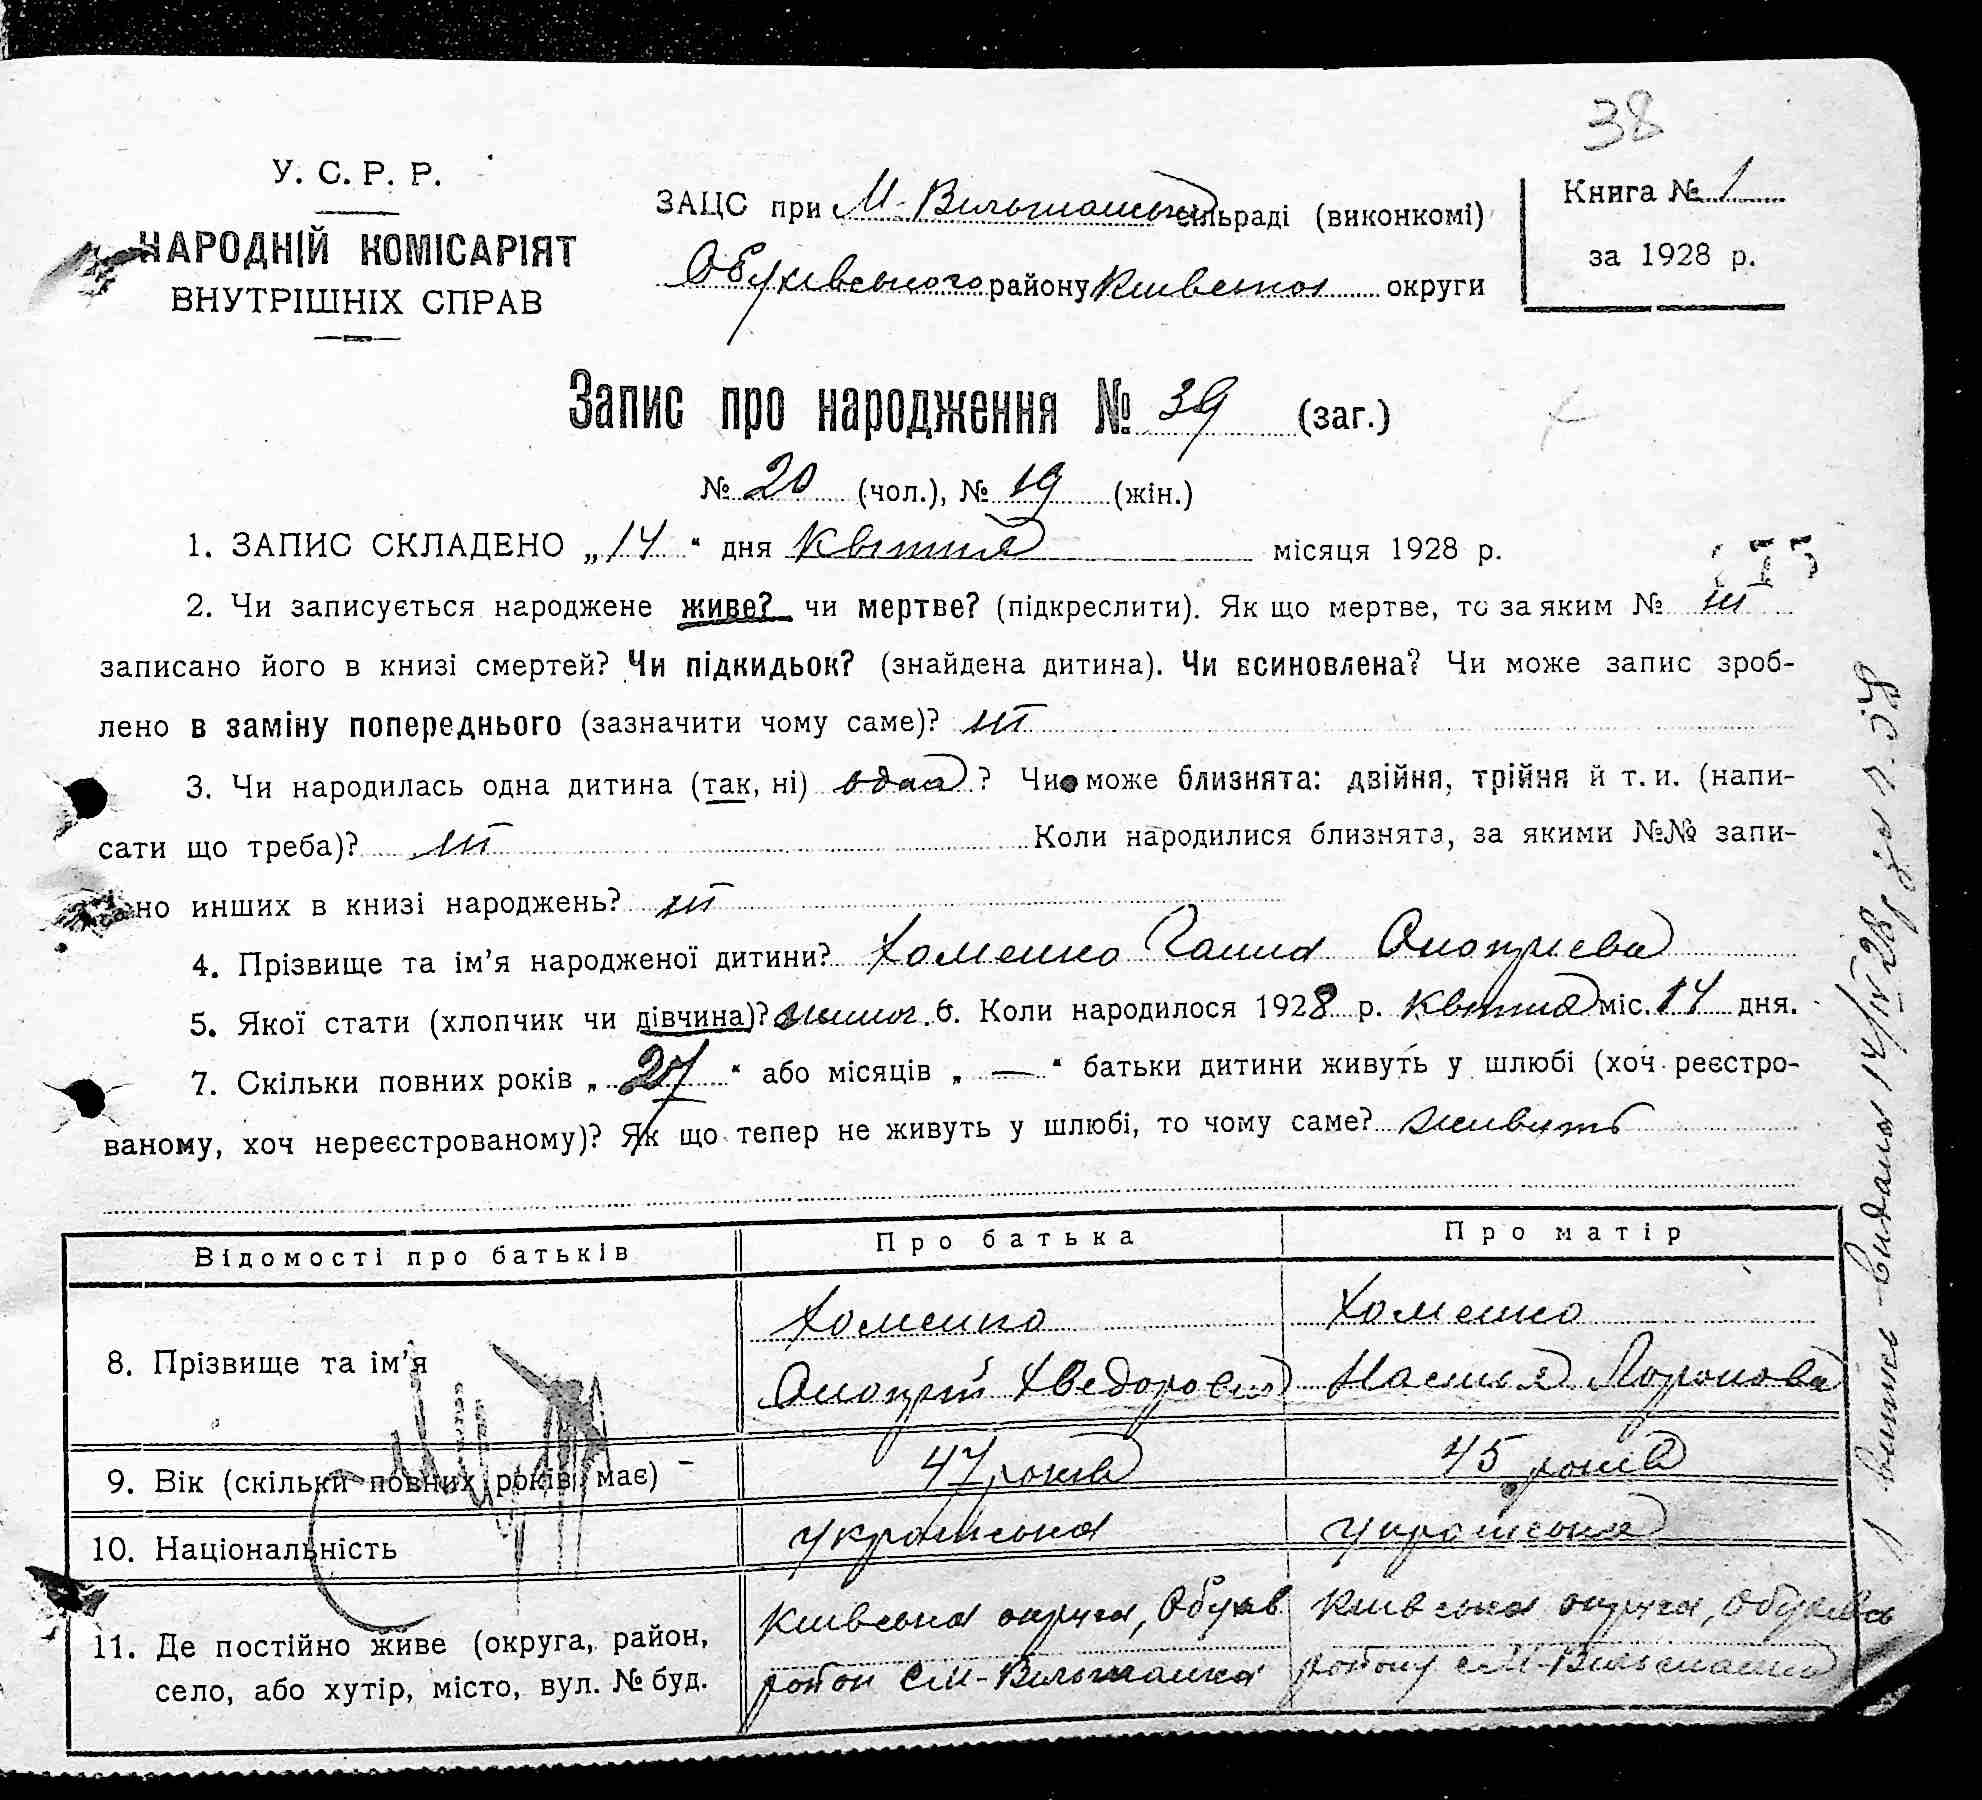 38
У. С. Р. Р.
НАРОДНІЙ КОМІСАРІЯТ
ВНУТРІШНІХ СПРАВ
ЗАЦС при М-Вільшанській сільраді (виконкомі)
Обухівського району Київської округи
Книга № 1
за 1928 р.
Запис про народження № 39 (заг.)
№ 20 (чол.), № 19 (жін.)
1. ЗАПИС СКЛАДЕНО „14“ дня Квітня місяця 1928 р.
2. Чи записується народжене живе? чи мертве? (підкреслити). Як що мертве, то за яким № ні
записано його в книзі смертей? Чи підкидьок? (знайдена дитина). Чи всиновлена? Чи може запис зроб-
лено в заміну попереднього (зазначити чому саме)? ні
3. Чи народилась одна дитина (так, ні) одна? Чи може близнята: двійня, трійня й т. и. (напи-
сати що треба)? ні Коли народилися близнята, за якими №№ запи-
но инших в книзі народжень? ні
4. Прізвище та ім'я народженої дитини? Хоменко Ганна Оноприєва
5. Якої стати (хлопчик чи дівчина)? жіноч. 6. Коли народилося 1928 р. Квітня міс. 14 дня.
7. Скільки повних років „27“ або місяців „—“ батьки дитини живуть у шлюбі (хоч реєстро-
ваному, хоч нереєстрованому)? Як що тепер не живуть у шлюбі, то чому саме? живуть
Відомості про батьків Про батька Про матір
8. Прізвище та ім'я
Хоменко Хоменко
Оноприй Хведоров Настя
9. Вік (скільки повних років має) 47 років 45 років
10. Національність українська українська
11. Де постійно живе (округа, район,
село, або хутір, місто, вул. № буд.
Київська округа, Обухів Київська округа, Обухівсь
район с М-Вільшанка району с М-Вільшанка
видана 14/IV 28 р за № 58